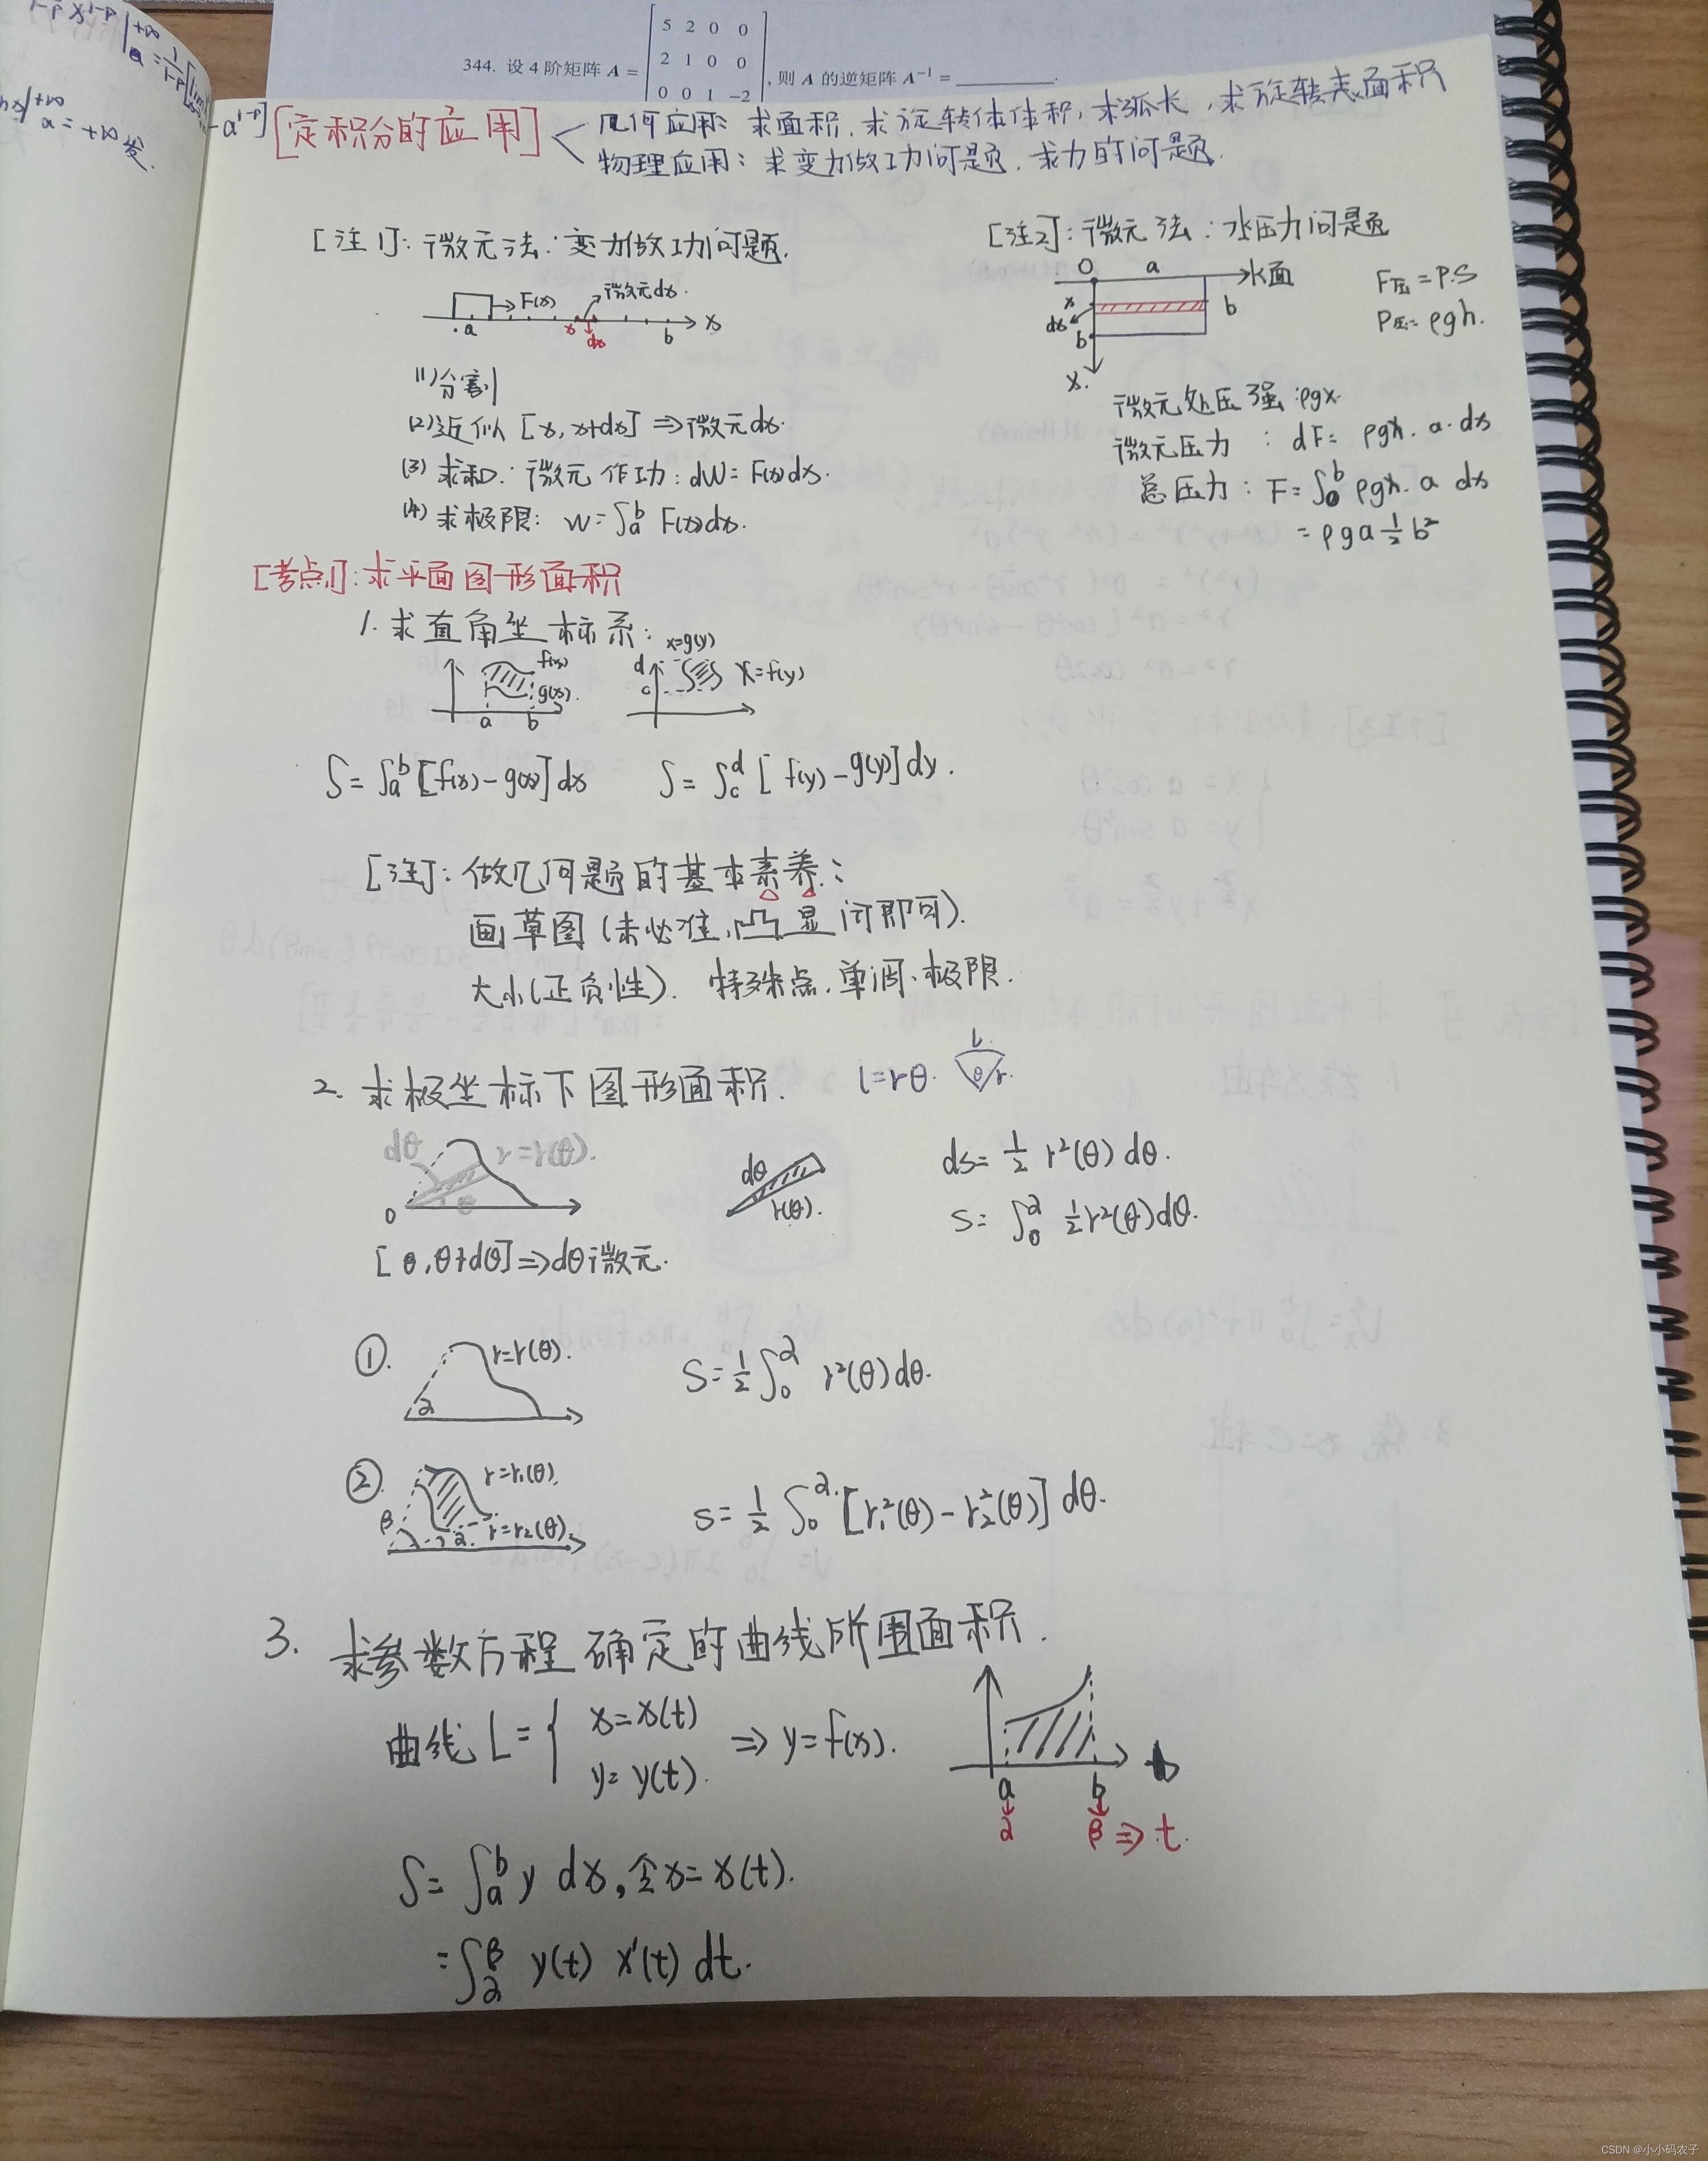 344. 设 4 阶矩阵 A =
5 2 0 0
2 1 0 0
0 0 1 -2
, 则 A 的逆矩阵 A⁻¹ = ________.
[定积分的应用]
几何应用: 求面积, 求旋转体体积, 求弧长, 求旋转表面积
物理应用: 求变力做功问题, 求力的问题.
[注1]: 微元法: 变力做功问题.
F(x) 微元dx.
a x dx b x
(1)分割
(2)近似 [x, x+dx] ⇒微元dx.
(3) 求和: 微元作功: dW= F(x)dx.
(4) 求极限: W=∫ₐᵇ F(x)dx.
[注2]: 微元法: 水压力问题
O a 水面
x dx b b x.
F压=P·S
P压= ρgh.
微元处压强: ρgx.
微元压力: dF= ρgx. a. dx
总压力: F=∫₀ᵇ ρgx. a dx
= ρga½b²
[考点1]: 求平面图形面积
1. 求直角坐标系:
f(x) g(x). a b
x=g(y) d c x=f(y)
S=∫ₐᵇ [f(x)-g(x)]dx S=∫_c^d [f(y)-g(y)]dy.
[注]: 做几何题的基本素养:
画草图(未必准,凸显问即可).
大小(正负性). 特殊点,单调、极限.
2. 求极坐标下图形面积. l=rθ. l θ r.
dθ r=r(θ). 0 θ
dθ r(θ).
ds= ½ r²(θ) dθ.
S= ∫₀^α ½r²(θ)dθ.
[θ,θ+dθ]⇒dθ微元.
①. r=r(θ). α S=½∫₀^α r²(θ)dθ.
②. r=r₁(θ). β α r=r₂(θ) S=½∫₀^α [r₁²(θ)-r₂²(θ)]dθ.
3. 求参数方程确定的曲线所围面积.
曲线 L={ x=x(t) y=y(t). ⇒ y=f(x).
a b
α β ⇒ t.
S=∫ₐᵇ y dx, 令x=x(t).
=∫_α^β y(t) x'(t) dt.
CSDN @小小码农子